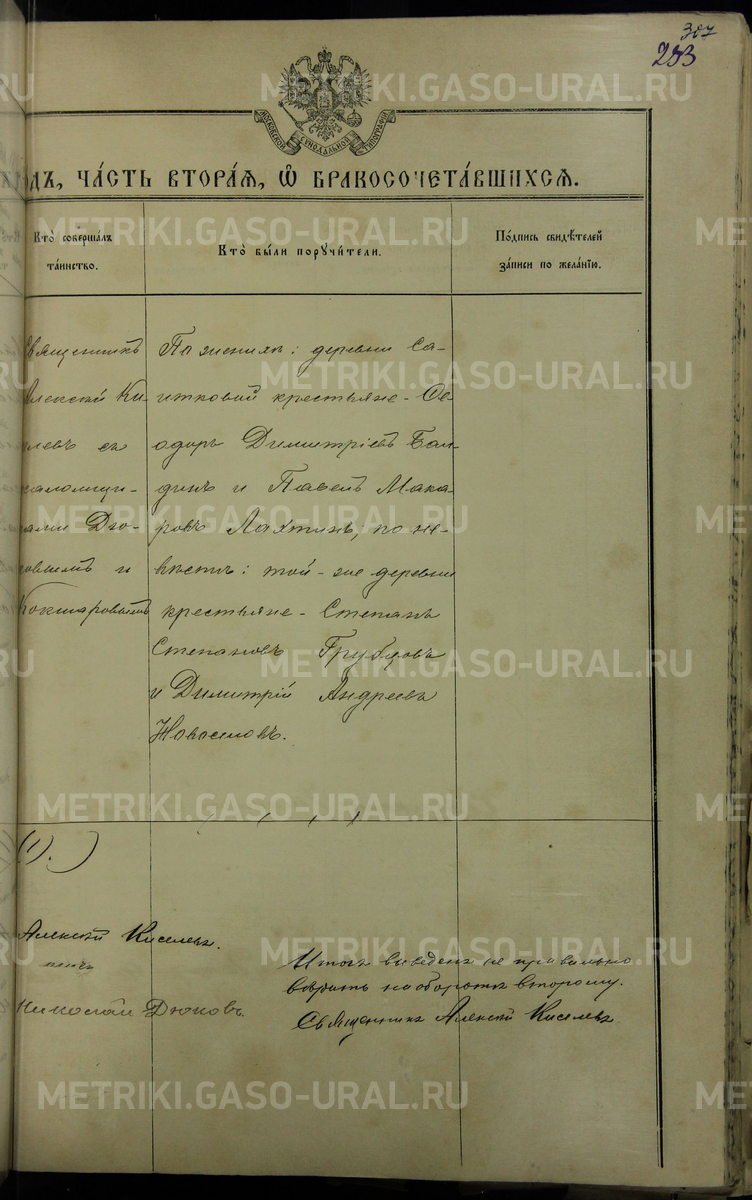 307
293
МОСКОВСКОЙ СѴНОДАЛЬНОЙ ТИПОГРАФІИ
ГОДЪ, ЧА́СТЬ ВТОРА́Ѧ, Ѡ҆ БРАКОСОЧЕТА́ВШИХСѦ.
Кто̀ соверша́лъ
та́инство.
Кто̀ бы́ли порꙋчи́тели.
По́дпись свидѣ́телей
за́писи по жела́нїю.
Священникъ
Алексѣй Ки-
селевъ съ
псаломщи-
ками Дю-
ковымъ и
Кокшаровымъ
По женихѣ: деревни Са-
итковой крестьяне - Ѳе
одоръ Димитріевъ Бал-
динъ и Павелъ Мака-
ровъ Лахтинъ; по не-
вѣстѣ: той-же деревни
крестьяне - Степанъ
Степановъ Грубцовъ
и Димитрій Андреевъ
Новоселовъ.
(1).)
Алексѣй Киселевъ.
Николай Дюковъ.
Итогъ выведенъ не правильно
вѣрить на оборотѣ второму.
Священникъ Алексѣй Киселевъ
METRIKI.GASO-URAL.RU